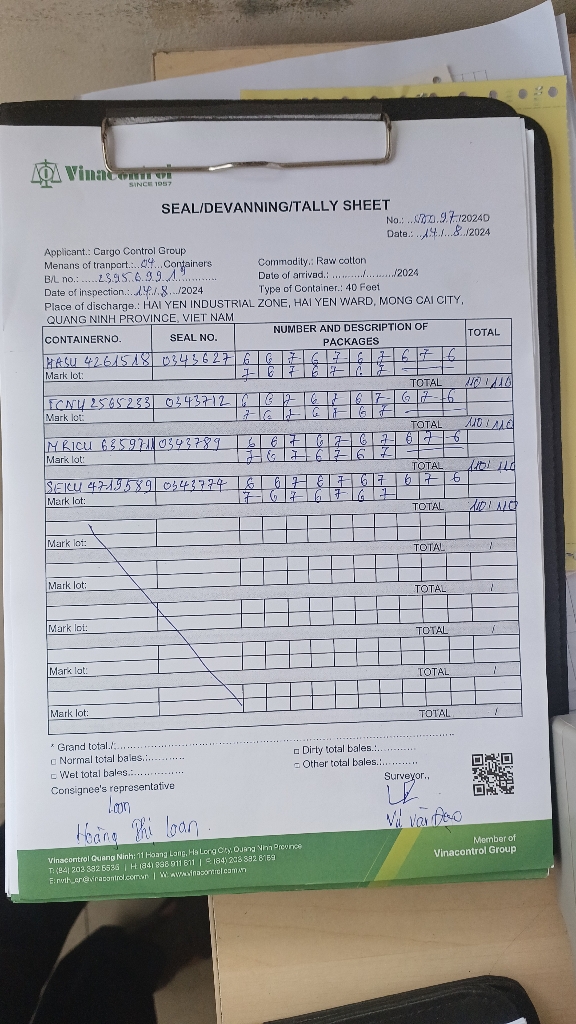 Vinacontrol
SINCE 1957
SEAL/DEVANNING/TALLY SHEET
No.: 97/2024D
Date.: 14/8/2024
Applicant.: Cargo Control Group
Menans of tranport.: 04 Containers
Commodity.: Raw cotton
B/L no.: 239569919
Date of arrived.: ........../........../2024
Date of inspection.: 14/8/2024
Type of Container.: 40 Feet
Place of discharge.: HAI YEN INDUSTRIAL ZONE, HAI YEN WARD, MONG CAI CITY,
QUANG NINH PROVINCE, VIET NAM
CONTAINERNO. SEAL NO. NUMBER AND DESCRIPTION OF PACKAGES TOTAL
HASU 4261518 0343627 6 6 7 6 7 6 7 6 7 6
Mark lot: 7 6 7 6 7 6 7
TOTAL 110/110
FCNU 2565233 0343712 6 6 7 6 7 6 7 6 7 6
Mark lot: 7 6 7 6 7 6 7
TOTAL 110/110
MRKU 0343789 6 6 7 6 7 6 7 6 7 6
Mark lot: 7 6 7 6 7 6 7
TOTAL 110/110
SEKU 4719589 0343774 6 6 7 6 7 6 7 6 7 6
Mark lot: 7 6 7 6 7 6 7
TOTAL 110/110
Mark lot:
TOTAL /
Mark lot:
TOTAL /
Mark lot:
TOTAL /
Mark lot:
TOTAL /
Mark lot:
TOTAL /
* Grand total./:
□ Normal total bales.:
□ Dirty total bales.:
□ Wet total bales.:
□ Other total bales.:
Consignee's representative
Surveyor.,
Loan
Hoàng Thị Loan
Vũ Văn Đạo
Vinacontrol Quang Ninh: 11 Hoang Long, Ha Long City, Quang Ninh Province
W: www.vinacontrol.com.vn
Member of
Vinacontrol Group